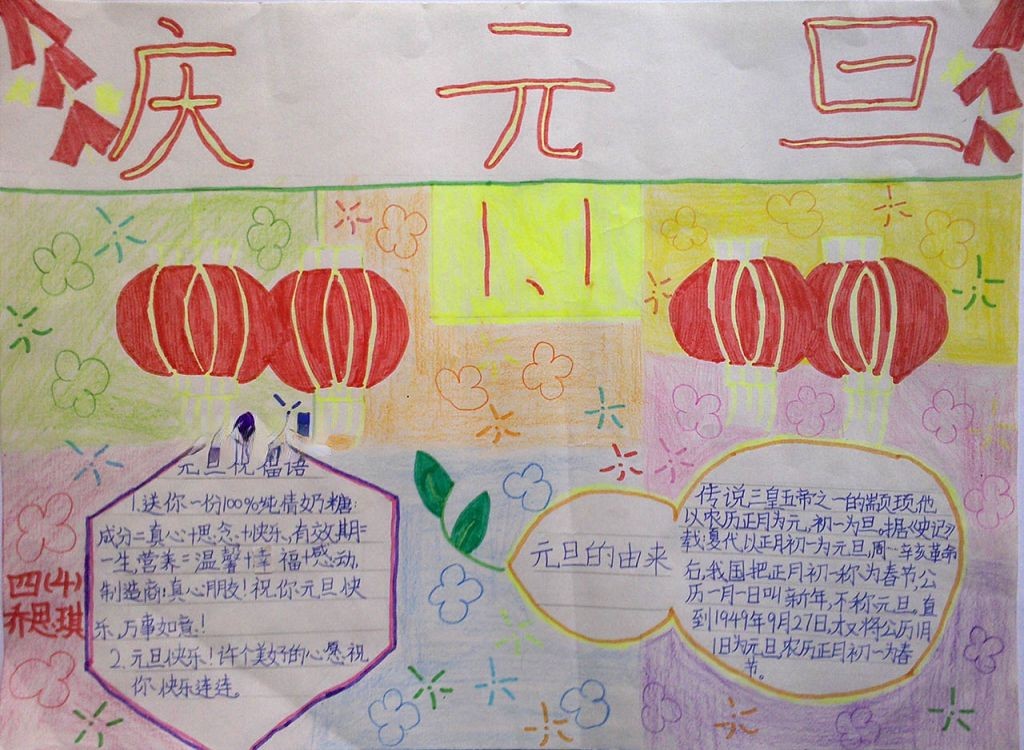 庆元旦
1、1
元旦祝福语
1.送你一份100%纯情奶糖:
成分=真心+思念+快乐,有效期=
一生,营养=温馨+幸福+感动,
制造商:真心朋友!祝你元旦快
乐,万事如意!
2.元旦快乐!许个美好的心愿祝
你快乐连连。
四(4)
乔思琪
元旦的由来
传说三皇五帝之一的颛顼,他
以农历正月为元,初一为旦。据《史记》
载:夏代以正月初一为元旦,周一辛亥革命
后,我国把正月初一称为春节,公
历一月一日叫新年,不称元旦。直
到1949年9月27日,才又将公历1月
1日为元旦,农历正月初一为春
节。